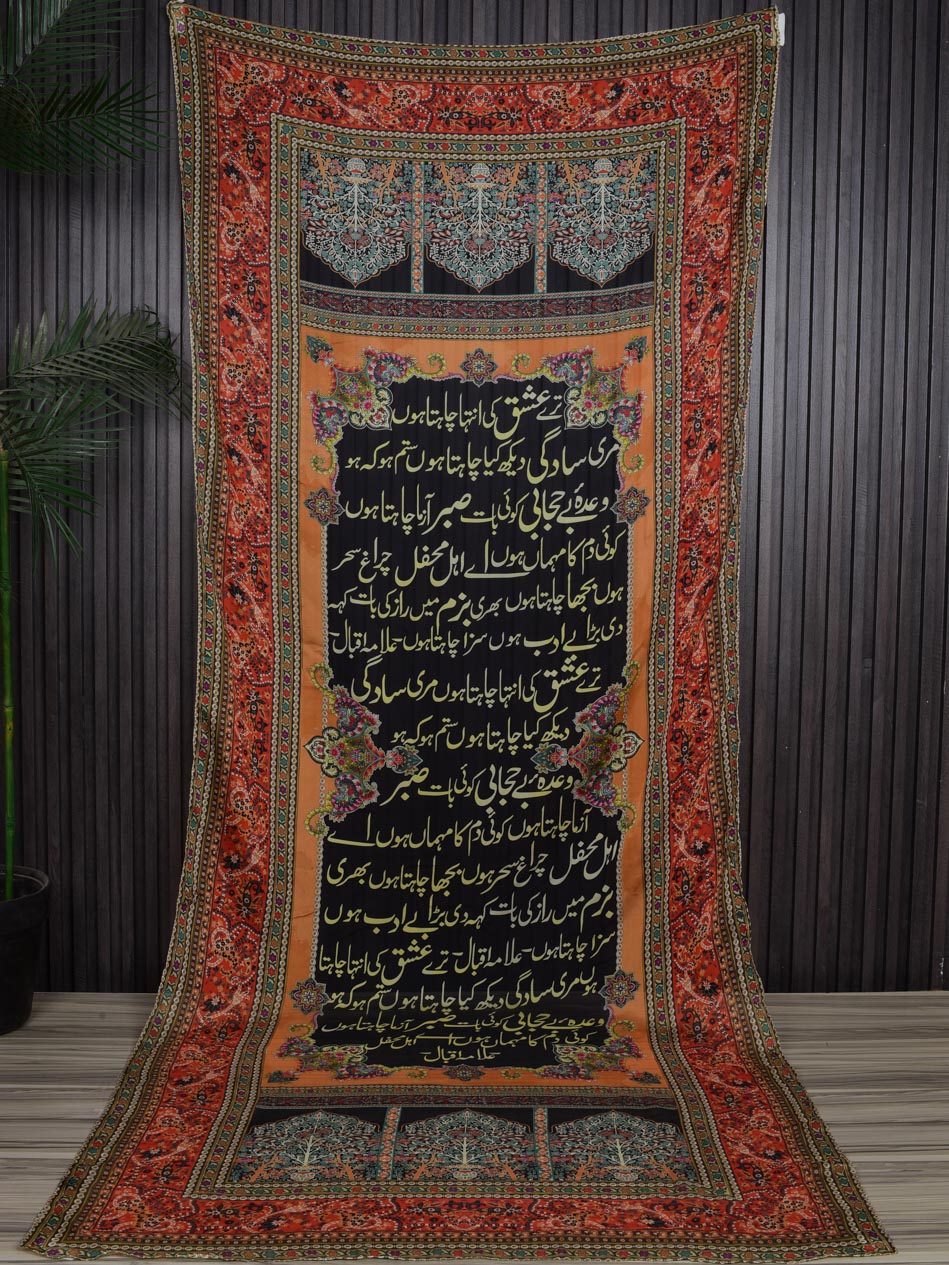 ترے عشق کی انتہا چاہتا ہوں
مری سادگی دیکھ کیا چاہتا ہوں ستم ہو کہ ہو
وعدۂ بے حجابی کوئی بات صبر آزما چاہتا ہوں
کوئی دم کا مہماں ہوں اے اہل محفل چراغ سحر
ہوں بجھا چاہتا ہوں بھری بزم میں راز کی بات کہہ
دی بڑا بے ادب ہوں سزا چاہتا ہوں۔ علامہ اقبال۔
ترے عشق کی انتہا چاہتا ہوں مری سادگی
دیکھ کیا چاہتا ہوں ستم ہو کہ ہو
وعدۂ بے حجابی کوئی بات صبر
آزما چاہتا ہوں کوئی دم کا مہماں ہوں اے
اہل محفل چراغ سحر ہوں بجھا چاہتا ہوں بھری
بزم میں راز کی بات کہہ دی بڑا بے ادب ہوں
سزا چاہتا ہوں۔ علامہ اقبال۔ ترے عشق کی انتہا چاہتا
ہوں مری سادگی دیکھ کیا چاہتا ہوں ستم ہو کہ ہو
وعدہ بے حجابی کوئی بات صبر آزما چاہتا ہوں
کوئی دم کا مہماں ہوں اے اہل محفل
علامہ اقبال۔